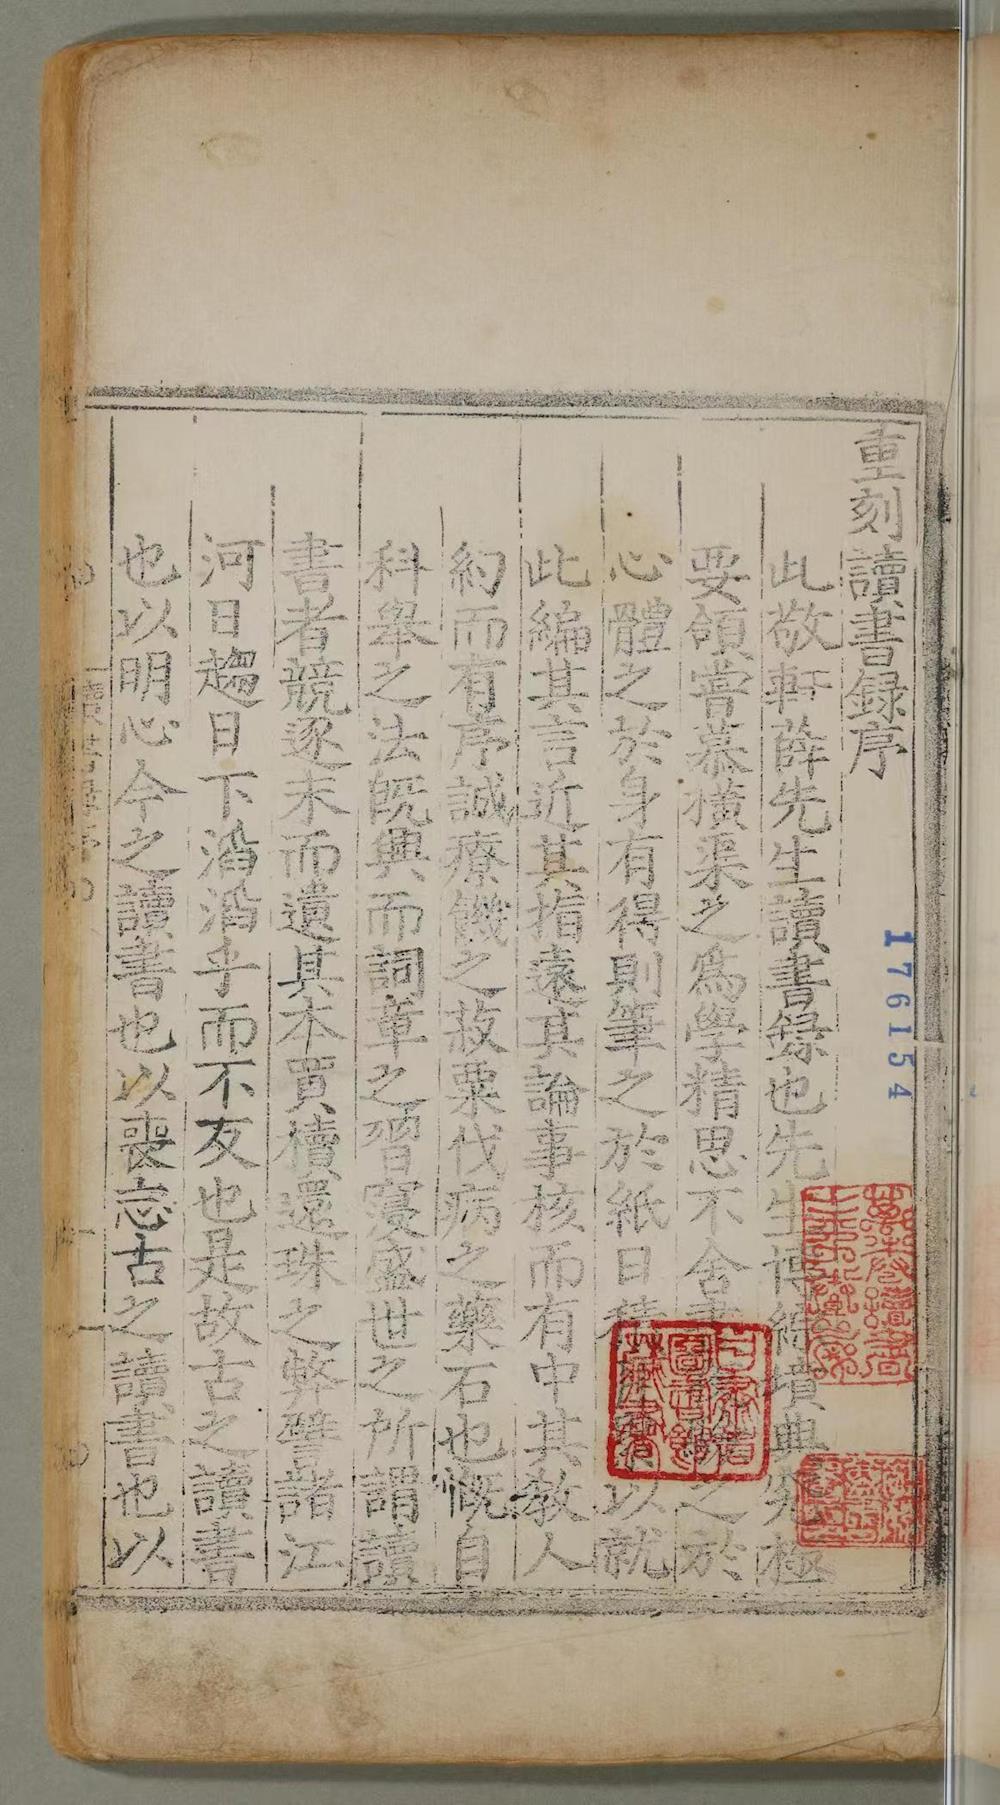 重刻讀書録序
此敬軒薛先生讀書録也先生博綜墳典究極
要領嘗慕橫渠之爲學精思不舍晝夜之於
心體之於身有得則筆之於紙日積以就
此編其言近其指遠其論事核而有中其教人
約而有序誠療饑之菽粟伐病之藥石也慨自
科舉之法旣興而詞章之習寖盛世之所謂讀
書者競逐末而遺其本買櫝還珠之弊譬諸江
河日趨日下滔滔乎而不友也是故古之讀書
也以明心今之讀書也以喪志古之讀書也以
176154